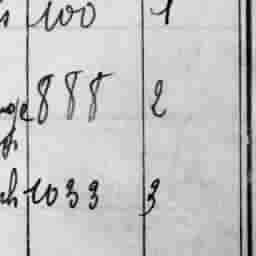 100 1
888 2
1033 3